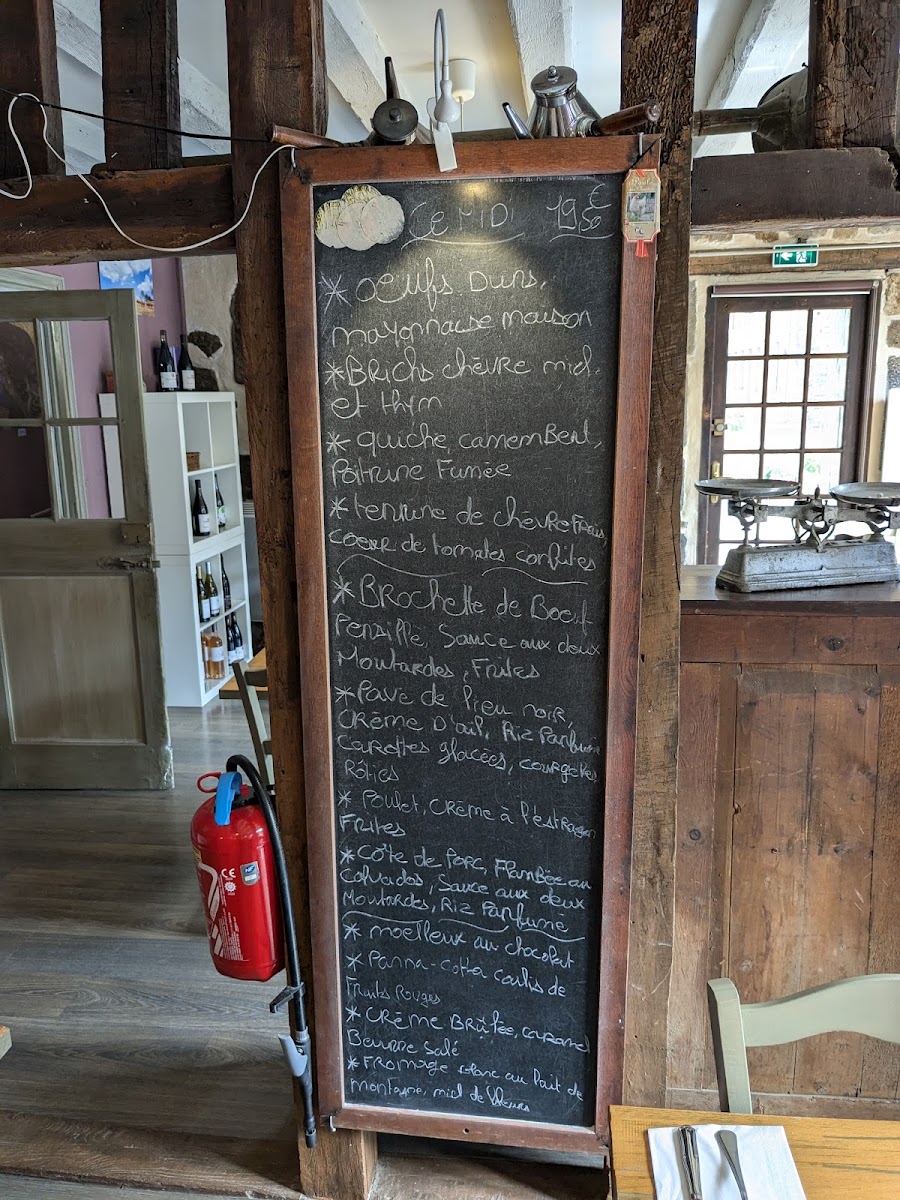 Ce MIDI 19,50€
* Oeufs Durs,
mayonnaise maison
* Bricks chèvre miel
et thym
* quiche camembert,
Poitrine Fumée
* terrine de chèvre frais,
coeur de tomates confites
* Brochette de Boeuf
Persillé, Sauce aux deux
Moutardes, Frites
* Pavé de lieu noir,
crème D'ail, Riz Parfumé
Carottes glacées, courgettes
Rôties
* Poulet, crème à l'estragon
Frites
* Côte de Porc, Flambée au
Calvados, Sauce aux deux
Moutardes, Riz Parfumé
* moelleux au chocolat
* Panna-cotta coulis de
Fruits Rouges
* Crème Brûlée, caramel
Beurre Salé
* Fromage Blanc au lait de
montagne, miel de fleurs
CE